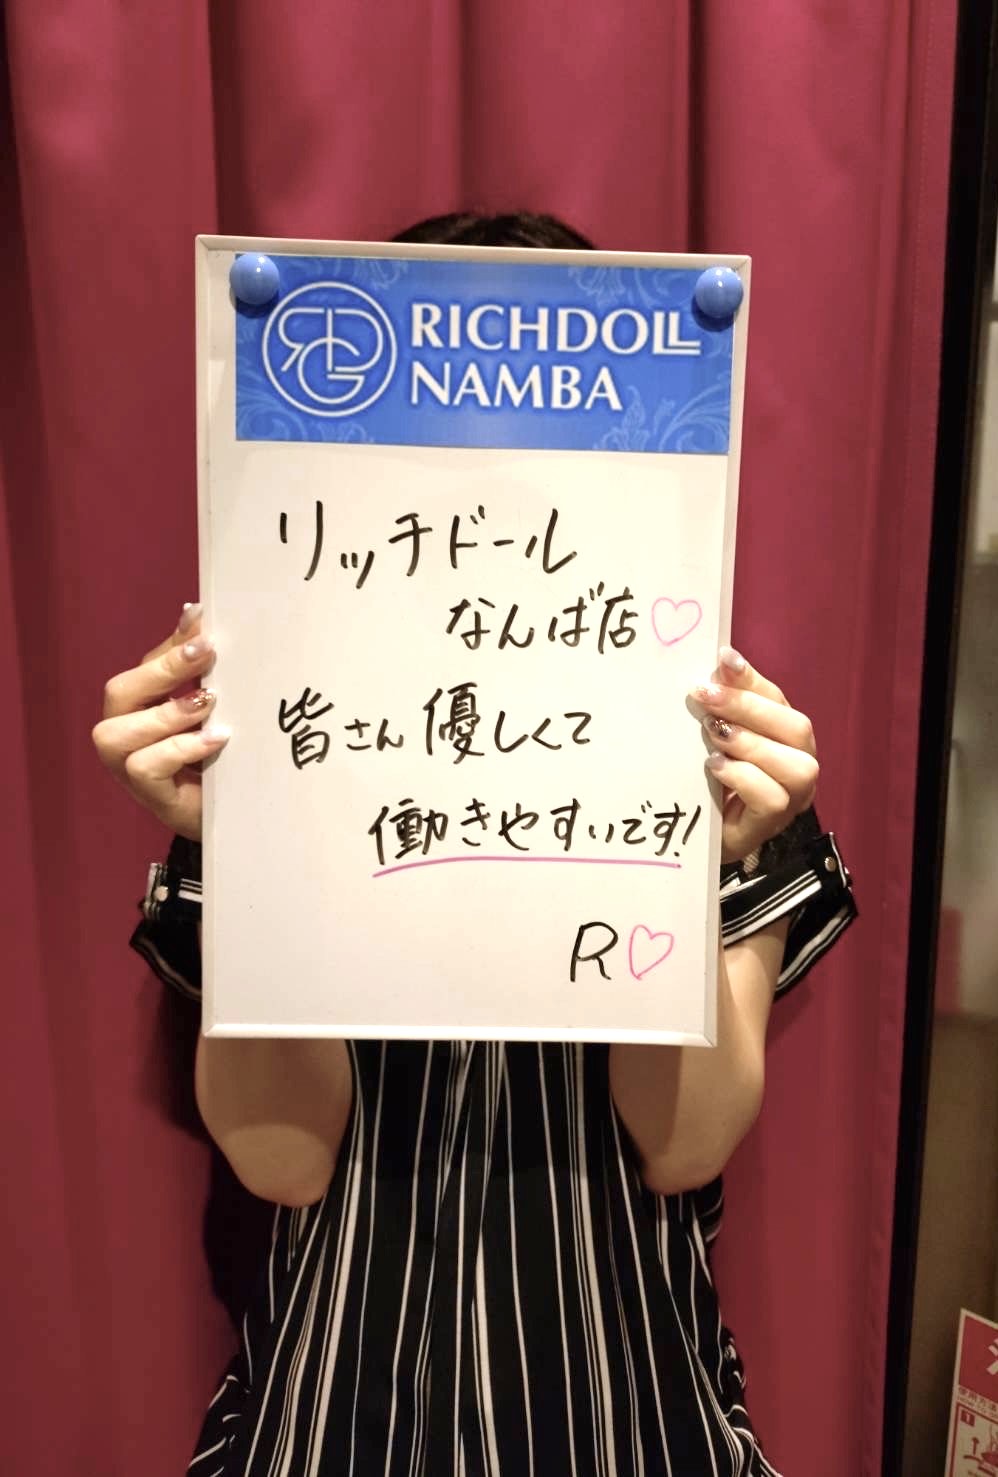 RDG
RICHDOLL
NAMBA
リッチドール
なんば店♡
皆さん優しくて
働きやすいです!
R♡
1